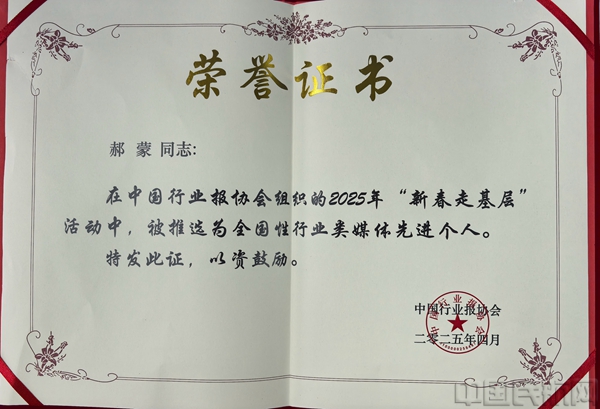 荣誉证书
郝 蒙 同志:
在中国行业报协会组织的2025年“新春走基层”
活动中，被推选为全国性行业类媒体先进个人。
特发此证，以资鼓励。
中国行业报协会
二零二五年四月
中国行业报协会
中国民航网